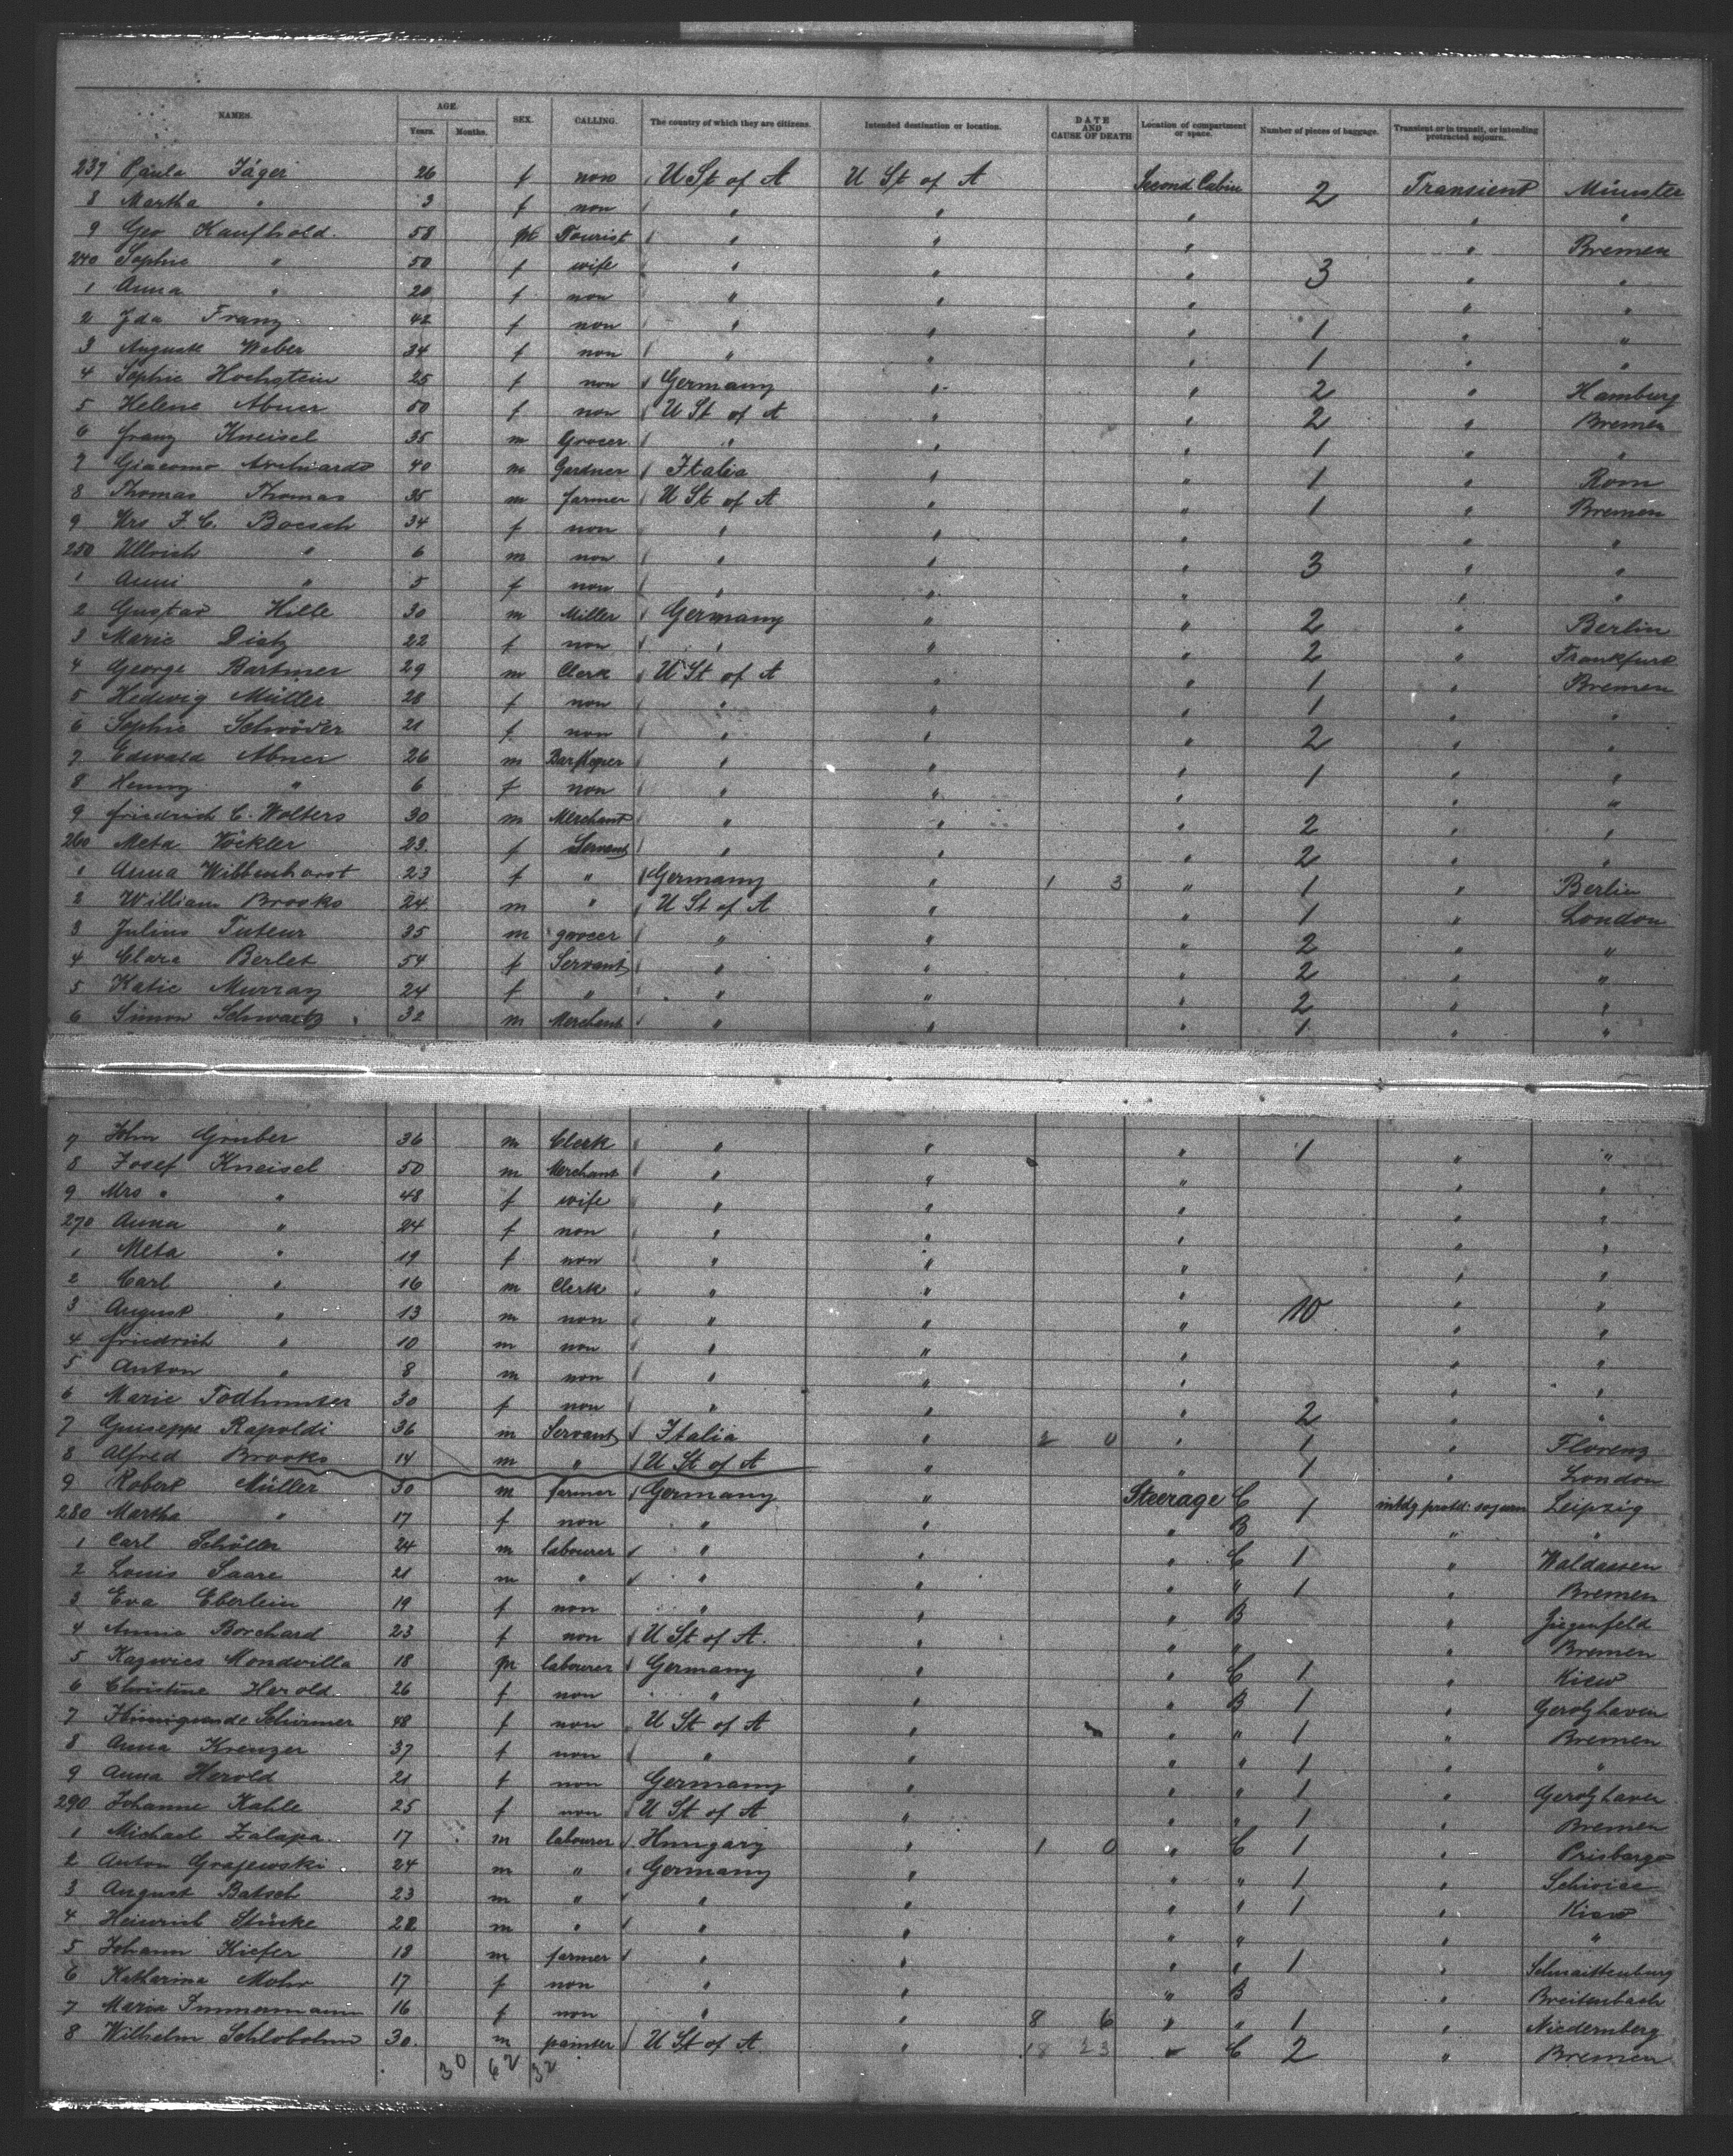 NAMES. AGE. SEX. CALLING. The country of which they are citizens. Intended destination or location. DATE AND CAUSE OF DEATH Location of compartment or space. Number of pieces of baggage. Transient or in transit, or intending protracted sojourn.
Years. Months.
237 Paula Jäger 26 f non U St of A U St of A Second Cabin 2 Transient Münster
8 Martha " 3 f non " " " " "
9 Geo Kaufhold 58 m Tourist " " " " Bremen
240 Sophie " 50 f wife " " " 3 " "
1 Anna " 20 f non " " " " "
2 Ida Franz 42 f non " " " 1 " "
3 Auguste Weber 34 f non " " " 1 " "
4 Sophie Hochstein 25 f non Germany " " 2 " Hamburg
5 Helene Abner 50 f non U St of A " " 2 " Bremen
6 Franz Kneisel 35 m Grocer " " " 1 " "
7 Giacomo 40 m Gardner Italia " " 1 " Rom
8 Thomas Thomas 35 m farmer U St of A " " 1 " Bremen
9 Mrs J. C. Boesch 34 f non " " " " "
250 Ullrich " 6 m non " " " 3 " "
1 Anni " 5 f non " " " " "
2 Gustav Hille 30 m Miller Germany " " 2 " Berlin
3 Marie Dietz 22 f non " " " 2 " Frankfurt
4 George Bartmer 29 m Clerk U St of A " " 1 " Bremen
5 Hedwig Müller 28 f non " " " 1 " "
6 Sophie Schröder 21 f non " " " 2 " "
7 Edwald Abner 26 m Barkeper " " " 1 " "
8 Henny " 6 f non " " " " "
9 Friedrich C. Wolters 30 m Merchant " " " 2 " "
260 Meta Vöckler 23 f Servant " " " 2 " "
1 Anna Wibbenhorst 23 f " Germany " 1 3 " 1 " Berlin
2 William Brooks 24 m " U St of A " " 1 " London
3 Julius Tuteur 35 m grocer " " " 2 " "
4 Clara Berlet 54 f Servant " " " 2 " "
5 Katie Murray 24 f " " " " 2 " "
6 Simon Schwartz 32 m Merchant " " " 1 " "
7 John Gruber 36 m Clerk " " " 1 " "
8 Josef Kneisel 50 m Merchant " " " " "
9 Mrs " " 48 f wife " " " " "
270 Anna " 24 f non " " " " "
1 Meta " 19 f non " " " " "
2 Carl " 16 m Clerk " " " " "
3 August " 13 m non " " " 10 " "
4 Friedrich " 10 m non " " " " "
5 Anton " 8 m non " " " " "
6 Marie Todhunter 30 f non " " " 2 " "
7 Guiseppe Rapoldi 36 m Servant Italia " 2 0 " 1 " Florenz
8 Alfred Brooks 14 m " U St of A " " 1 " London
9 Robert Müller 30 m farmer Germany " Steerage C 1 intdg protd: sojourn Leipzig
280 Martha " 17 f non " " " B " "
1 Carl Schöller 24 m labourer " " " C 1 " Waldassen
2 Louis Saare 21 m " " " " " 1 " Bremen
3 Eva Eberlein 19 f non " " " B " Ziegenfeld
4 Annie Borchard 23 f non U St of A. " " " " Bremen
5 Mondvilla 18 m labourer Germany " " C 1 " Kiew
6 Christine Herold 26 f non " " " B 1 " Geroldshaven
7 Schirmer 48 f non U St of A " " " 1 " Bremen
8 Anna Kreuzer 37 f non " " " " 1 " "
9 Anna Herold 21 f non Germany " " " 1 "
290 Johanne Kahle 25 f non U St of A " " " 1 " Bremen
1 Michael Zalapa 17 m labourer Hungary " 1 0 " C 1 "
2 Anton Grajewski 24 m " Germany " " " 1 "
3 August Batsch 23 m " " " " " 1 " Kiew
4 Heinrich Stünke 22 m " " " " " " "
5 Johann Kiefer 18 m farmer " " " " 1 " Schnaittenburg
6 Katharina Mohr 17 f non " " " B " Breitenbach
7 Maria Immermann 16 f non " " 8 6 " " 1 " Niedernberg
8 Wilhelm Schlobohm 30. m painter U St of A " 18 23 " C 2 " Bremen
30 62 32